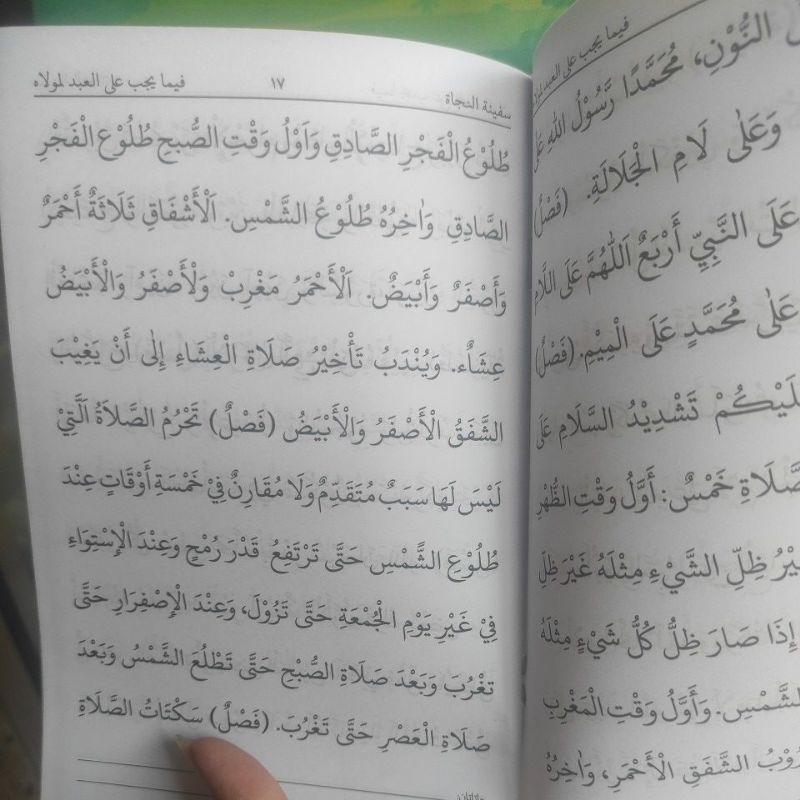 سفينة النجاة ١٧ فيما يجب على العبد لمولاه
طُلُوْعُ الْفَجْرِ الصَّادِقِ وَاَوَّلُ وَقْتِ الصُّبحِ طُلُوْع الْفَجْرِ
الصَّادِقِ وَاٰخِرُهُ طُلُوْعُ الشَّمْسِ. اَلْأَشْفَاقِ ثَلَاثَةٌ أَحْمَرٌ
وَأَصْفَرٌ وَأَبْيَضٌ. اَلْأَحْمَرُ مَغْرِبْ وَلْأَصْفَرُ وَالْأَبْيَضُ
عِشَاٌء. وَيُنْدَبُ تَأْخِيْرُ صَلَاةِ الْعِشَاءِ إِلٰى أَنْ يَغِيْبَ
الشَّفَقُ الْأَصْفَرُ وَالْأَبْيَضُ (فَصْلٌ) تَحْرُمُ الصَّلَاةُ اَلَّتِيْ
لَيْسَ لَهَا سَبَبٌ مُتَقَدِّمٌ وَلَا مُقَارِنٌ فِيْ خَمْسَةِ أَوْقَاتٍ عِنْدَ
طُلُوْعِ الشَّمْسِ حَتَّى تَرْتَفِعُ قَدْرَ رُمْحٍ وَعِنْدَ الْإِسْتِوَاءِ
فِيْ غَيْرِ يَوْمِ الْجُمْعَةِ حَتَّى تَزُوْلَ، وَعِنْدَ الْإِصْفِرَارِ حَتَّى
تَغْرُبَ وَبَعْدَ صَلَاةِ الصُّبْحِ حَتَّى تَطْلُعَ الشَّمْسُ وَبَعْدَ
صَلَاةِ الْعَصْرِ حَتَّى تَغْرُبَ. (فَصْلٌ) سَكْتَاتُ الصَّلَاةِ
فيما يجب على العبد لمولاه
النُّوْنِ، مُحَمَّدًا رَّسُوْلُ اللهِ عَلَى
وَعَلٰى لَامِ الْجَلَالَةِ. (فَصْلٌ)
عَلَى النَّبِيِّ أَرْبَعٌ اَللّٰهُمَّ عَلَى اللَّامِ
عَلٰى مُحَمَّدٍ عَلَى الْمِيْمِ. (فَصْلٌ)
تَشْدِيْدُ السَّلَامِ عَلَى
خَمْسٌ: أَوَّلُ وَقْتِ الظُّهْرِ
ظِلِّ الشَّيْءِ مِثْلَهُ غَيْرَ ظِلِّ
إِذَا صَارَ ظِلُّ كُلُّ شَيْءٍ مِثْلَهُ
الشَّمْسِ. وَأَوَّلُ وَقْتِ الْمَغْرِبِ
الشَّفَقِ الْأَحْمَرِ، وَاٰخِرُهُ